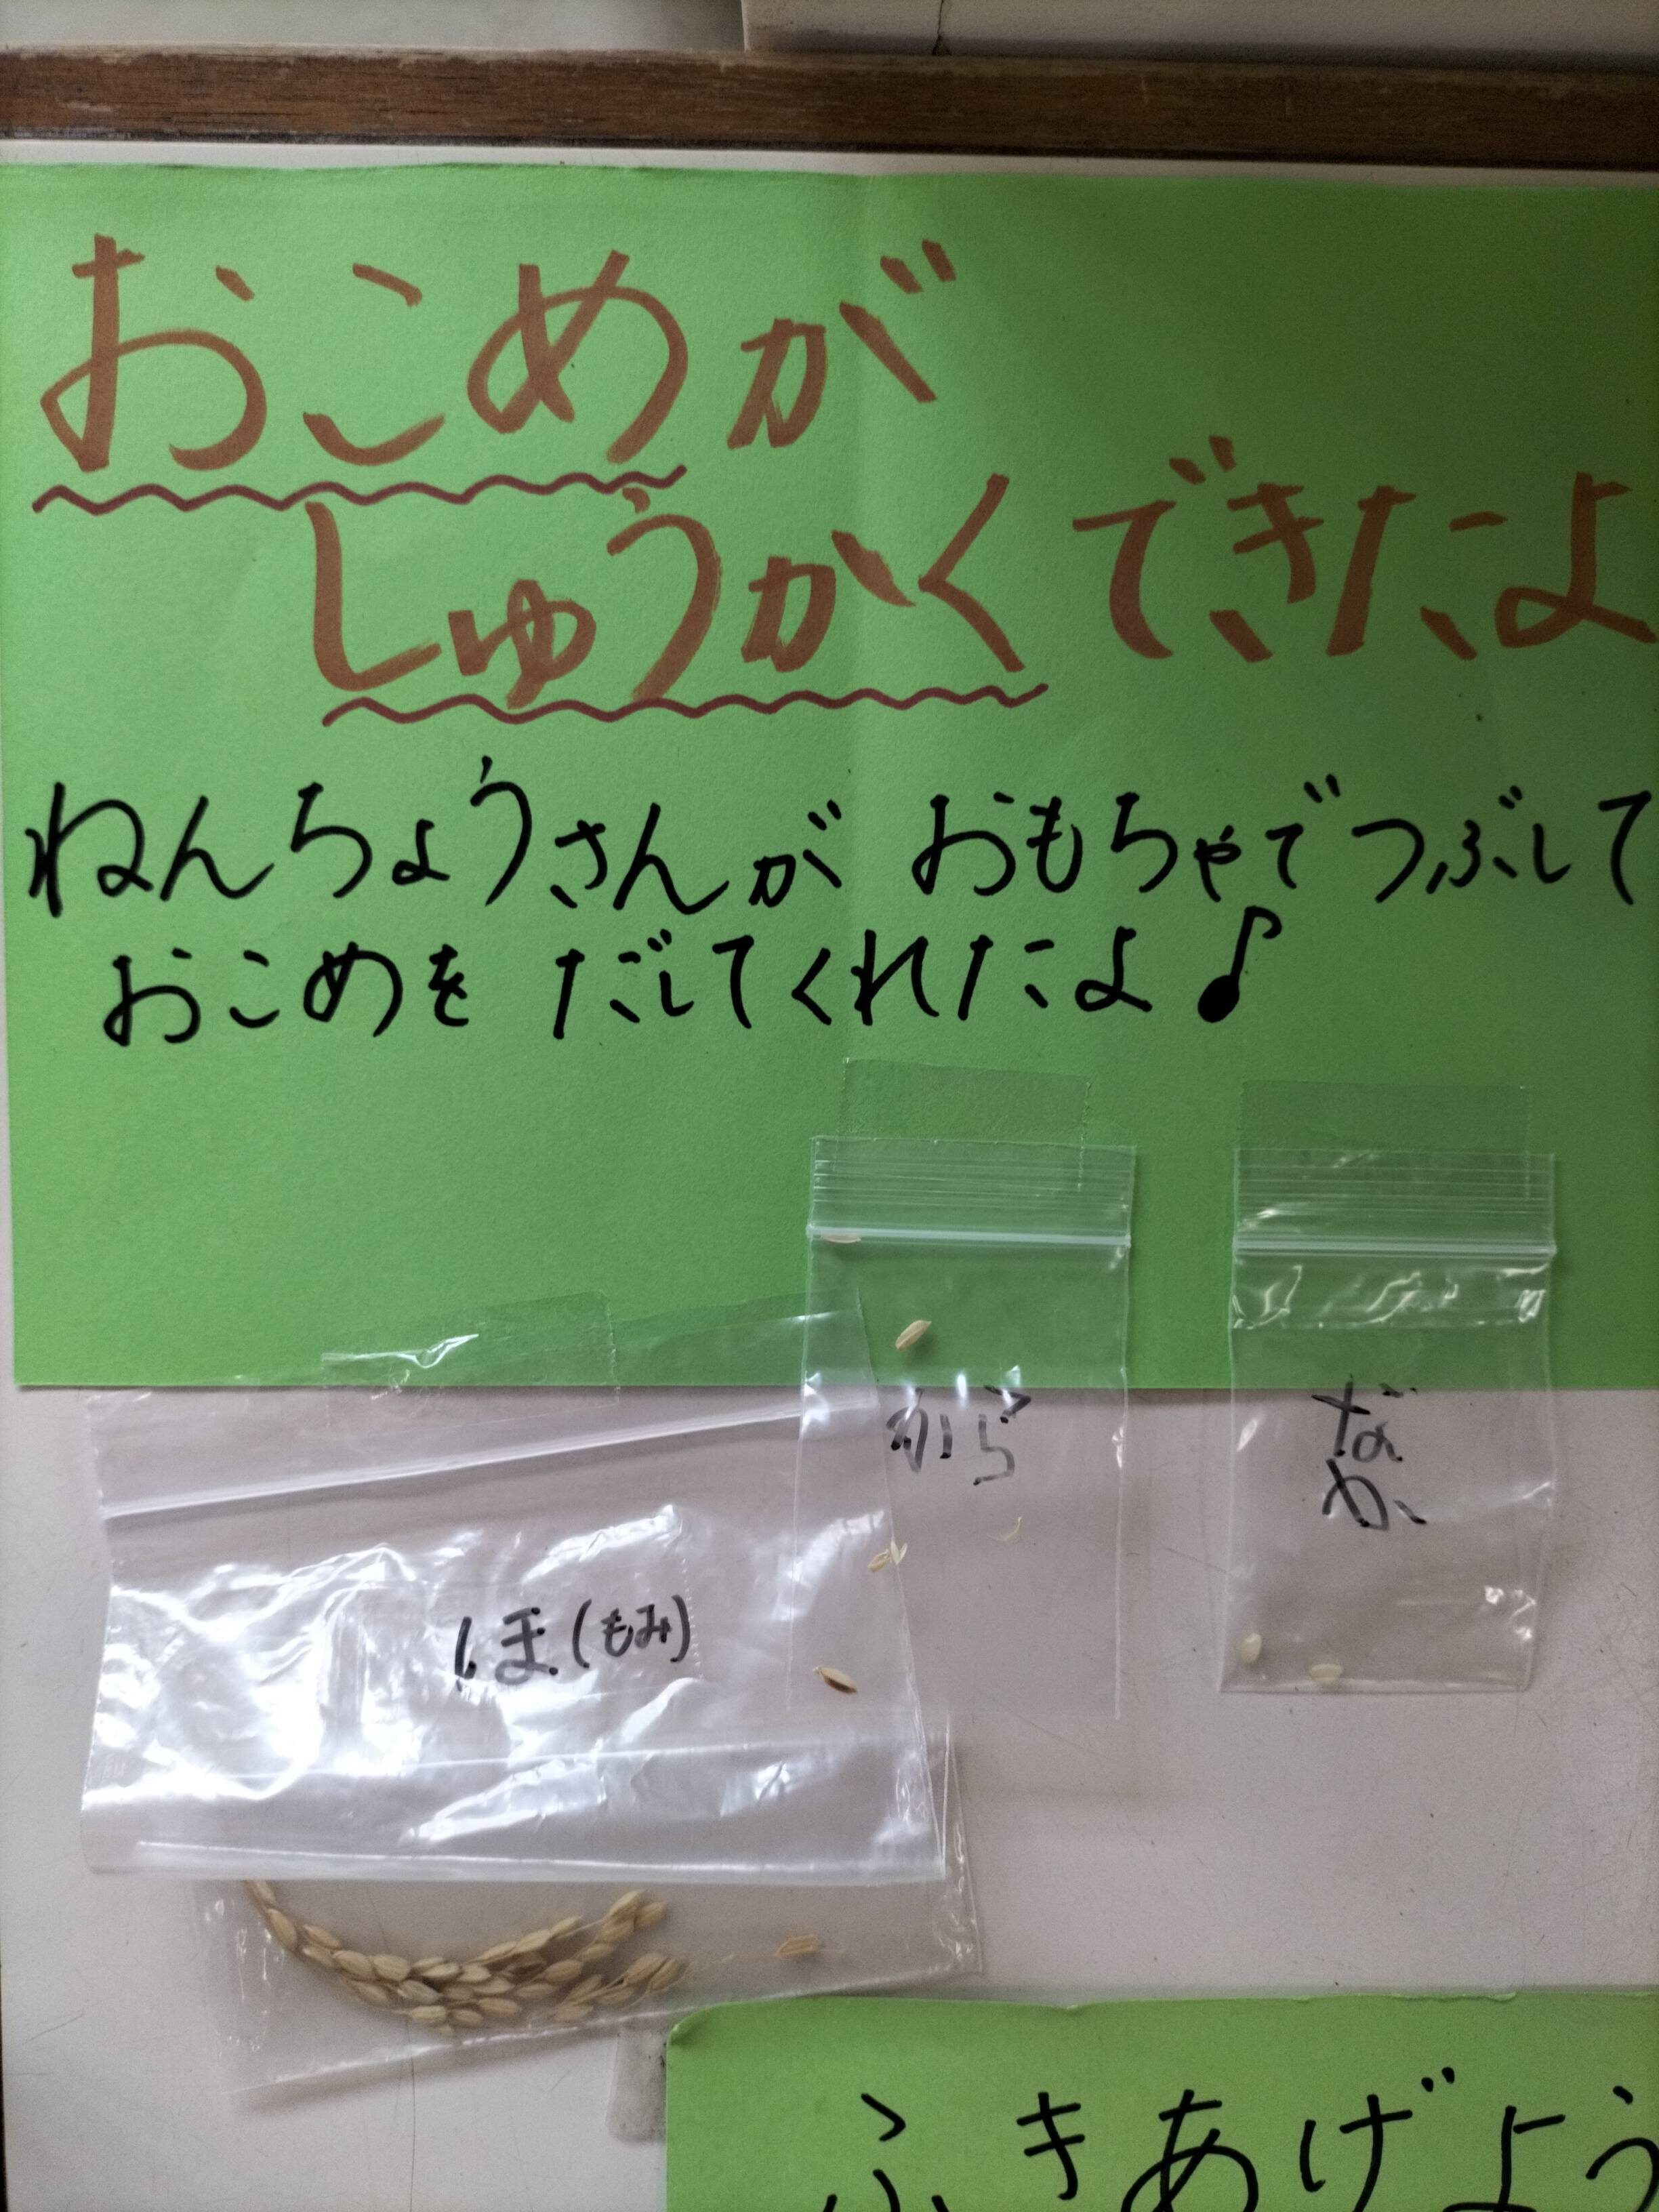 おこめが
しゅうかくできたよ
ねんちょうさんが おもちゃでつぶして
おこめを だしてくれたよ♪
から
なか
ほ(もみ)
ふきあげよう